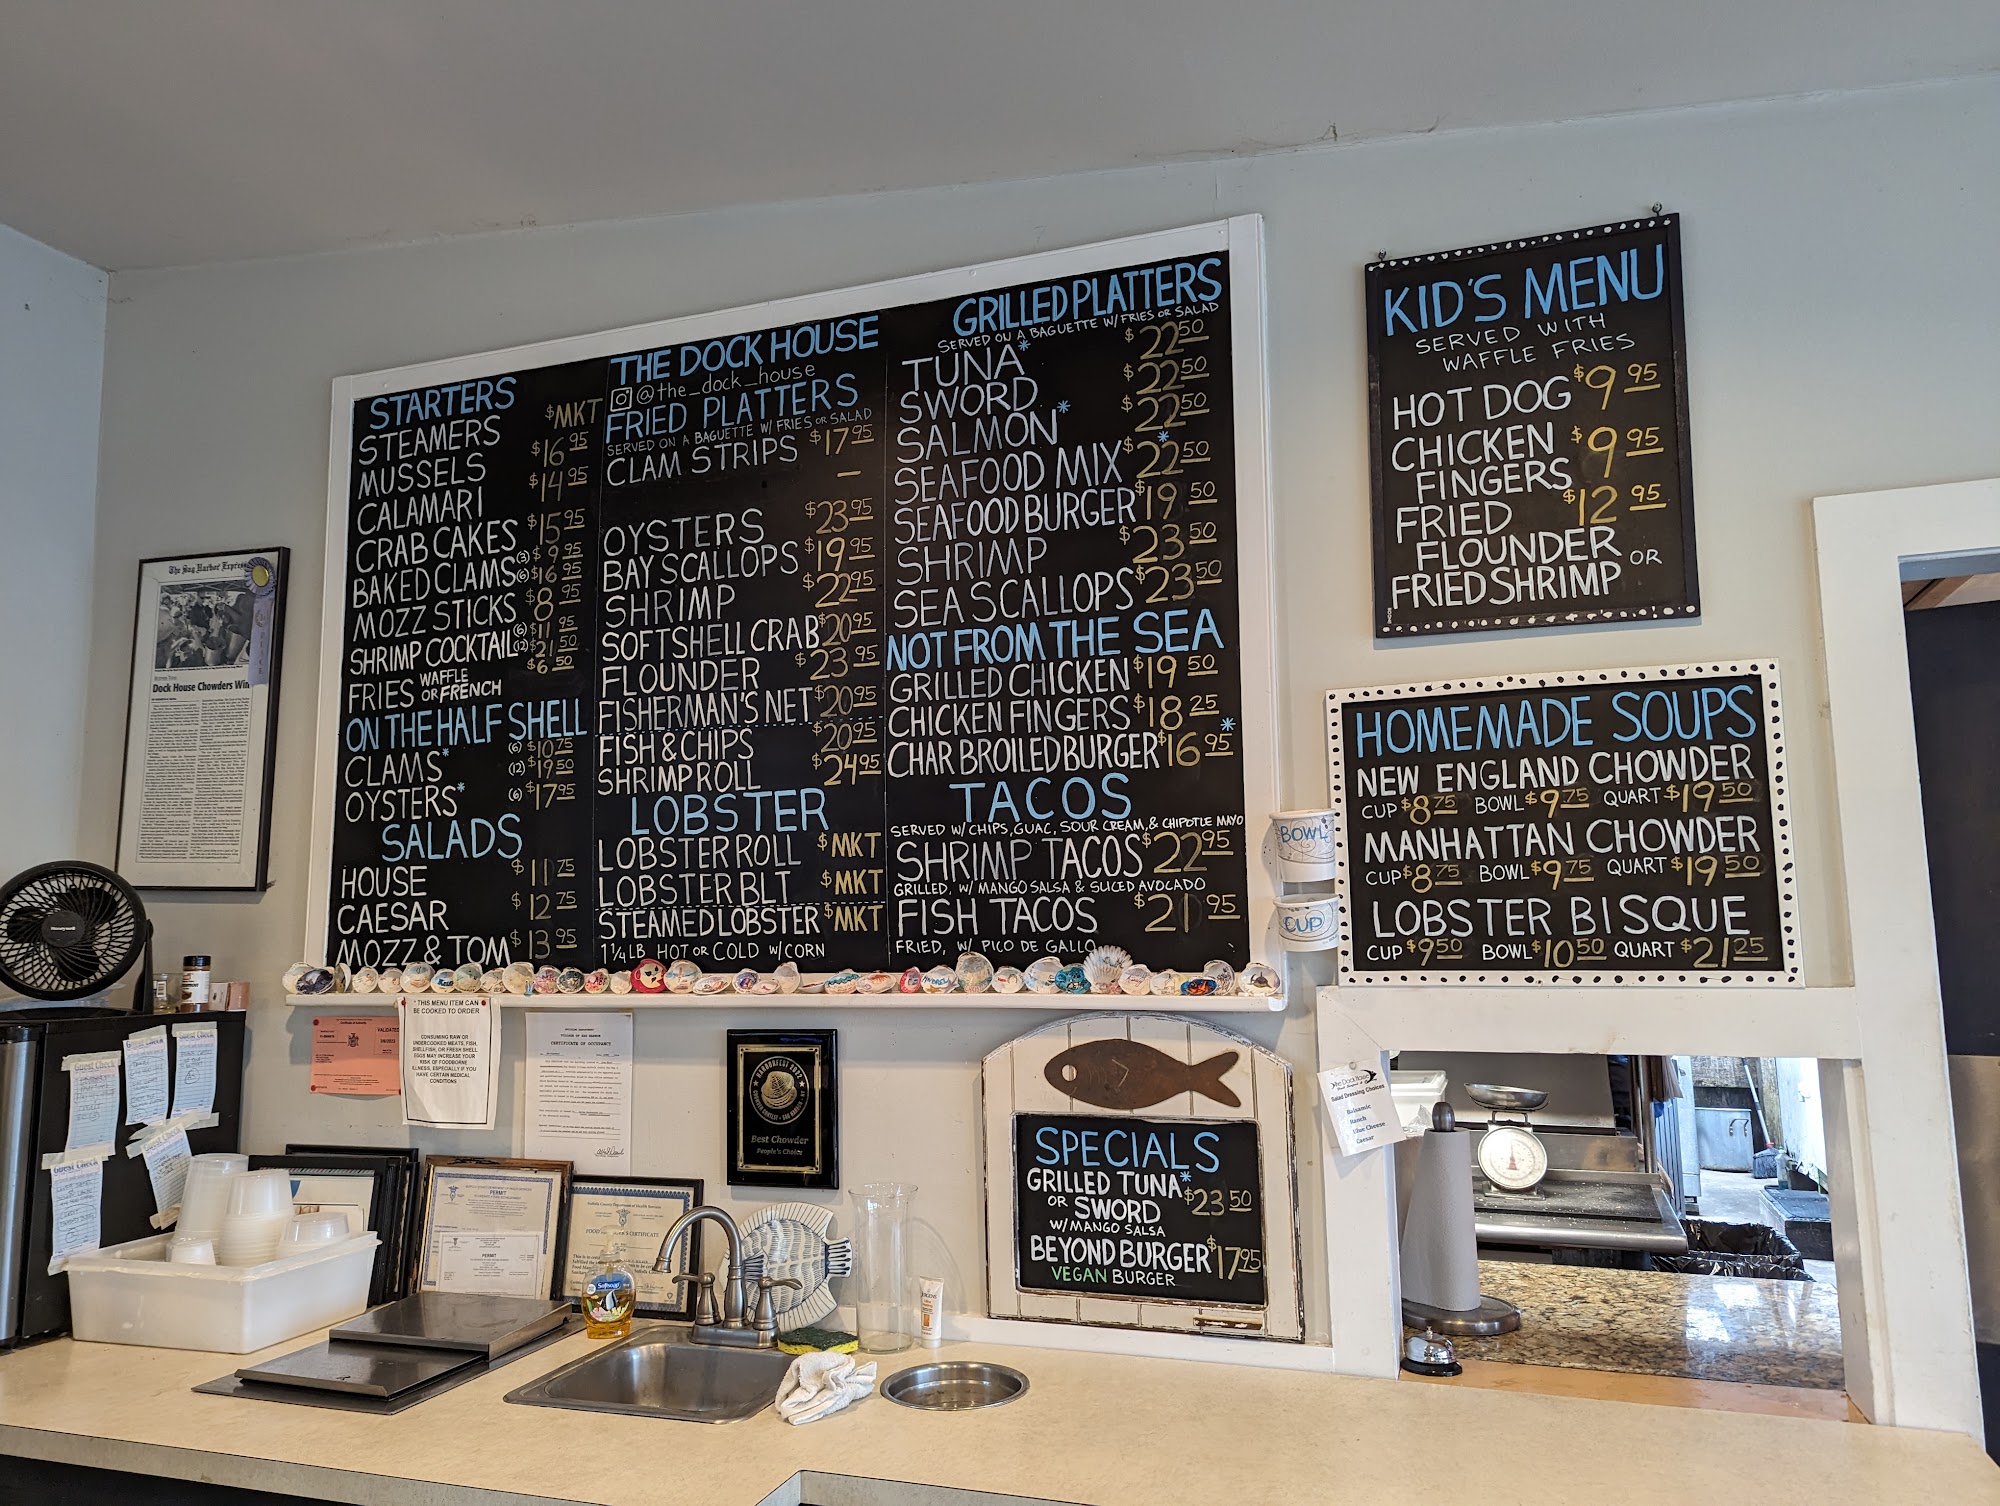 STARTERS
STEAMERS $MKT
MUSSELS $16.95
CALAMARI $14.95
CRAB CAKES $15.95
BAKED CLAMS (3) $9.95
(6) $16.95
MOZZ STICKS $8.95
SHRIMP COCKTAIL (6) $11.95
(12) $21.50
FRIES WAFFLE OR FRENCH $6.50
ON THE HALF SHELL
CLAMS* (6) $10.75
(12) $19.50
OYSTERS* (6) $17.95
SALADS
HOUSE $11.75
CAESAR $12.75
MOZZ & TOM $13.95
THE DOCK HOUSE
@the_dock_house
FRIED PLATTERS
SERVED ON A BAGUETTE W/ FRIES OR SALAD
CLAM STRIPS $17.95
OYSTERS $23.95
BAY SCALLOPS $19.95
SHRIMP $22.95
SOFTSHELL CRAB $20.95
FLOUNDER $23.95
FISHERMAN'S NET $20.95
FISH & CHIPS $20.95
SHRIMP ROLL $24.95
LOBSTER
LOBSTER ROLL $MKT
LOBSTER BLT $MKT
STEAMED LOBSTER $MKT
1 1/4 LB HOT OR COLD W/ CORN
GRILLED PLATTERS
SERVED ON A BAGUETTE W/ FRIES OR SALAD
TUNA* $22.50
SWORD $22.50
SALMON* $22.50
SEAFOOD MIX* $22.50
SEAFOOD BURGER $19.50
SHRIMP $23.50
SEA SCALLOPS $23.50
NOT FROM THE SEA
GRILLED CHICKEN $19.50
CHICKEN FINGERS $18.25
CHAR BROILED BURGER $16.95*
TACOS
SERVED W/ CHIPS, GUAC, SOUR CREAM, & CHIPOTLE MAYO
SHRIMP TACOS $22.95
GRILLED, W/ MANGO SALSA & SLICED AVOCADO
FISH TACOS $21.95
FRIED, W/ PICO DE GALLO
KID'S MENU
SERVED WITH
WAFFLE FRIES
HOT DOG $9.95
CHICKEN
FINGERS $9.95
FRIED $12.95
FLOUNDER OR
FRIED SHRIMP
HOMEMADE SOUPS
NEW ENGLAND CHOWDER
CUP $8.75 BOWL $9.75 QUART $19.50
MANHATTAN CHOWDER
CUP $8.75 BOWL $9.75 QUART $19.50
LOBSTER BISQUE
CUP $9.50 BOWL $10.50 QUART $21.25
BOWL
CUP
SPECIALS
GRILLED TUNA*
OR SWORD $23.50
W/ MANGO SALSA
BEYOND BURGER $17.95
VEGAN BURGER
The Sag Harbor Express
Dock House Chowders Win
* THIS MENU ITEM CAN
BE COOKED TO ORDER
CONSUMING RAW OR
UNDERCOOKED MEATS, FISH,
SHELLFISH, OR FRESH SHELL
EGGS MAY INCREASE YOUR
RISK OF FOODBORNE
ILLNESS, ESPECIALLY IF YOU
HAVE CERTAIN MEDICAL
CONDITIONS
CERTIFICATE OF OCCUPANCY
HARBORFEST 2022
Best Chowder
People's Choice
Guest Check
Guest Check
Guest Check
Guest Check
PERMIT
PERMIT
Softsoap
The Dock House
Salad Dressing Choices
Balsamic
Ranch
Blue Cheese
Caesar